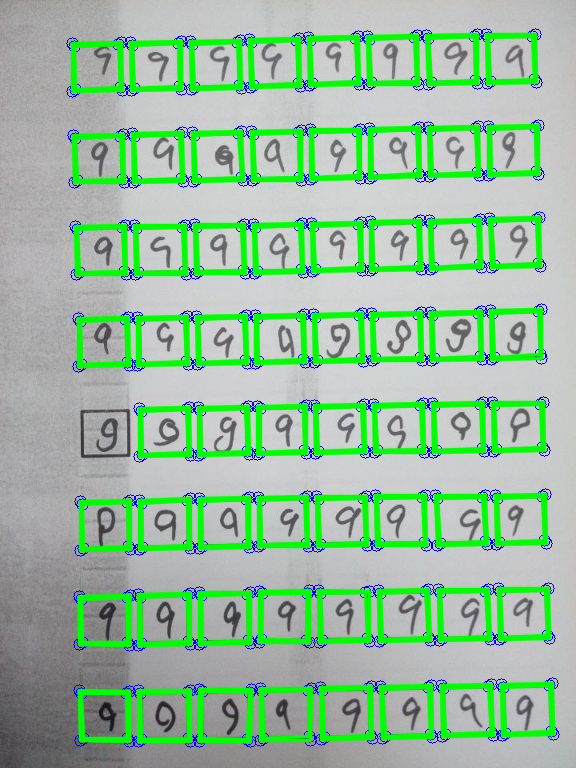 9 9 9 9 9 9 9 9
9 9 9 9 9 9 9 9
9 9 9 9 9 9 9 9
9 9 9 9 9 9 9 9
9 9 9 9 9 9 9 P
P 9 9 9 9 9 9 9
9 9 9 9 9 9 9 9
9 9 9 9 9 9 9 9